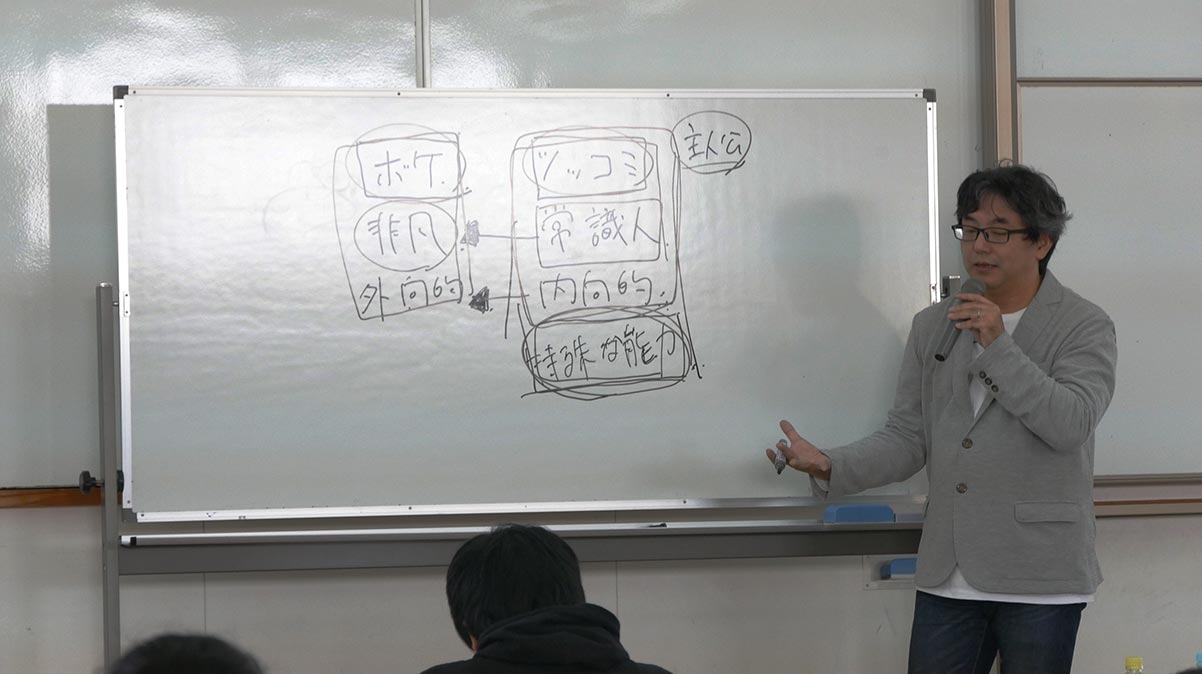 ボケ
非凡
外向的
ツッコミ
常識人
内向的
特殊な能力
主人公